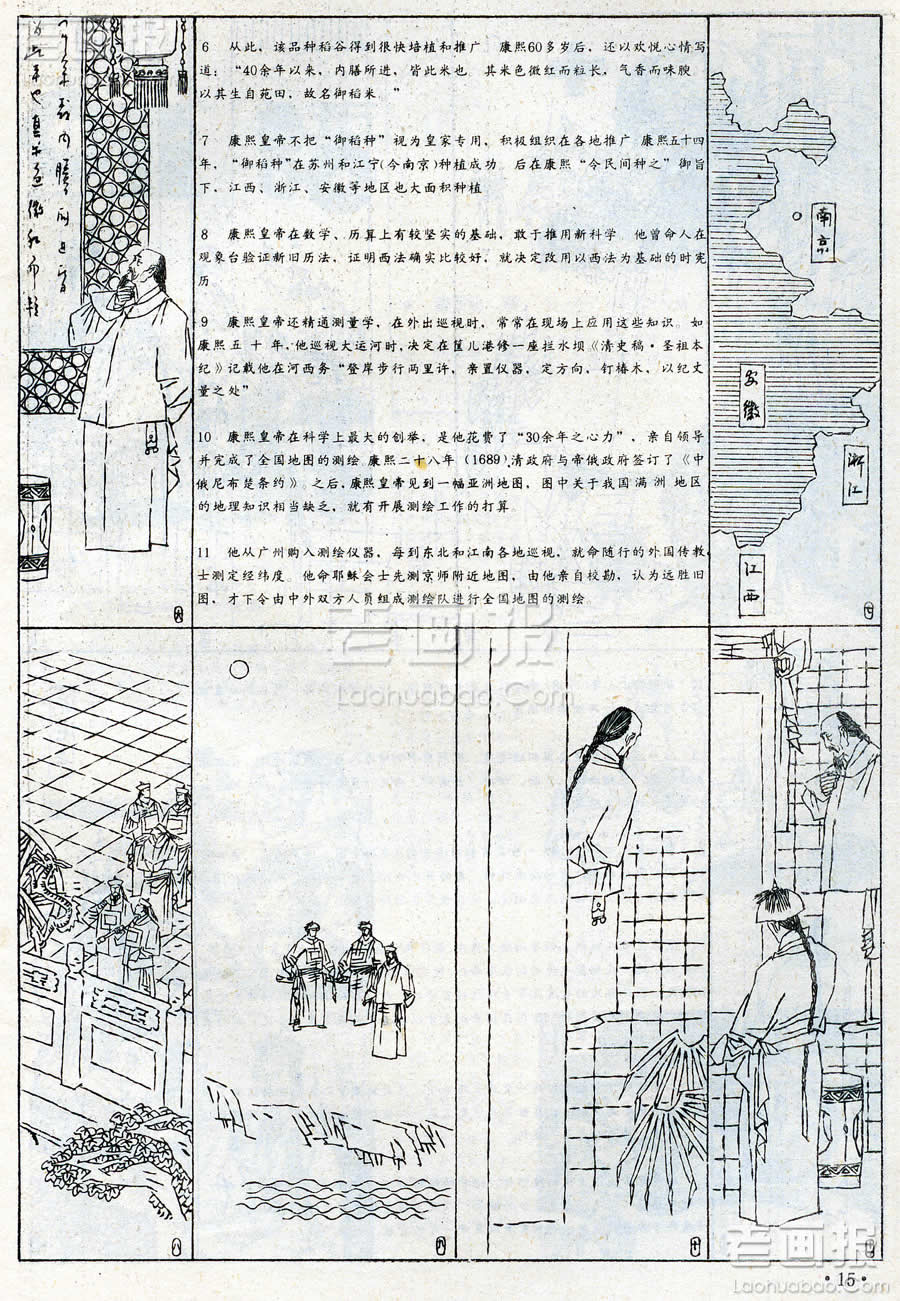 6 从此，该品种稻谷得到很快培植和推广 康熙60多岁后，还以欢悦心情写
道：“40余年以来，内膳所进，皆此米也 其米色微红而粒长，气香而味腴
以其生自苑田，故名御稻米。”
7 康熙皇帝不把“御稻种”视为皇家专用，积极组织在各地推广 康熙五十四
年，“御稻种”在苏州和江宁(今南京)种植成功 后在康熙“令民间种之”御旨
下，江西、浙江、安徽等地区也大面积种植
8 康熙皇帝在数学、历算上有较坚实的基础，敢于推用新科学 他曾命人在
观象台验证新旧历法，证明西法确实比较好，就决定改用以西法为基础的时宪
历
9 康熙皇帝还精通测量学，在外出巡视时，常常在现场上应用这些知识。如
康熙五十年，他巡视大运河时，决定在筐儿港修一座拦水坝《清史稿·圣祖本
纪》记载他在河西务“登岸步行两里许，亲置仪器，定方向，钉椿木，以纪丈
量之处”
10 康熙皇帝在科学上最大的创举，是他花费了“30余年之心力”，亲自领导
并完成了全国地图的测绘 康熙二十八年（1689），清政府与帝俄政府签订了《中
俄尼布楚条约》。之后，康熙皇帝见到一幅亚洲地图，图中关于我国满洲地区
的地理知识相当缺乏，就有开展测绘工作的打算
11 他从广州购入测绘仪器，每到东北和江南各地巡视，就命随行的外国传教
士测定经纬度。他命耶稣会士先测京师附近地图，由他亲自校勘，认为远胜旧
图，才下令由中外双方人员组成测绘队进行全国地图的测绘。
南京
安徽
浙江
江西
六
七
老画报
Laohuabao.Com
八
九
十
老画报
Laohuabao.Com
·15·